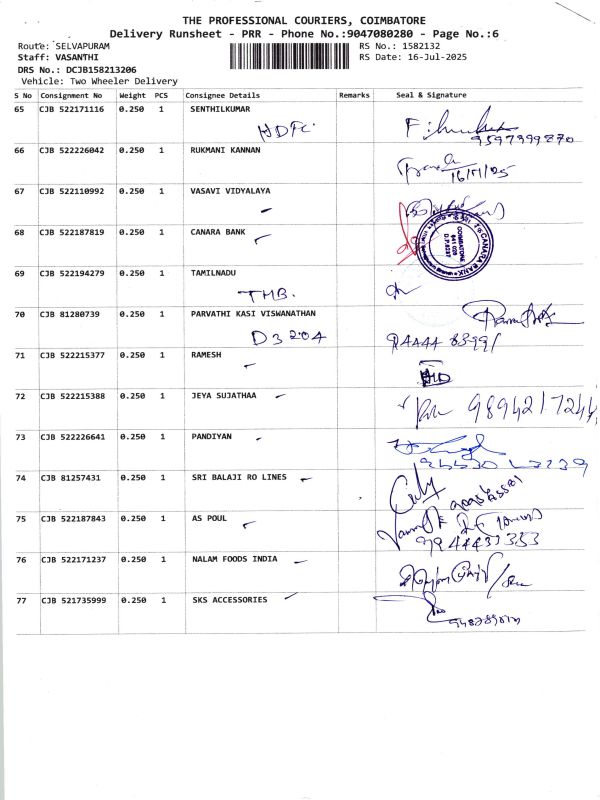 THE PROFESSIONAL COURIERS, COIMBATORE
Delivery Runsheet - PRR - Phone No.:9047080280 - Page No.:6
Route: SELVAPURAM RS No.: 1582132
Staff: VASANTHI RS Date: 16-Jul-2025
DRS No.: DCJB158213206
Vehicle: Two Wheeler Delivery
S No Consignment No Weight PCS Consignee Details Remarks Seal & Signature
65 CJB 522171116 0.250 1 SENTHILKUMAR
HDFC
9597399870
66 CJB 522226042 0.250 1 RUKMANI KANNAN
16/7/25
67 CJB 522110992 0.250 1 VASAVI VIDYALAYA
68 CJB 522187819 0.250 1 CANARA BANK
CANARA BANK
COIMBATORE
69 CJB 522194279 0.250 1 TAMILNADU
TMB.
70 CJB 81280739 0.250 1 PARVATHI KASI VISWANATHAN
D3 204
71 CJB 522215377 0.250 1 RAMESH
72 CJB 522215388 0.250 1 JEYA SUJATHAA
9894217244
73 CJB 522226641 0.250 1 PANDIYAN
74 CJB 81257431 0.250 1 SRI BALAJI RO LINES
75 CJB 522187843 0.250 1 AS POUL
9944437333
76 CJB 522171237 0.250 1 NALAM FOODS INDIA
77 CJB 521735999 0.250 1 SKS ACCESSORIES